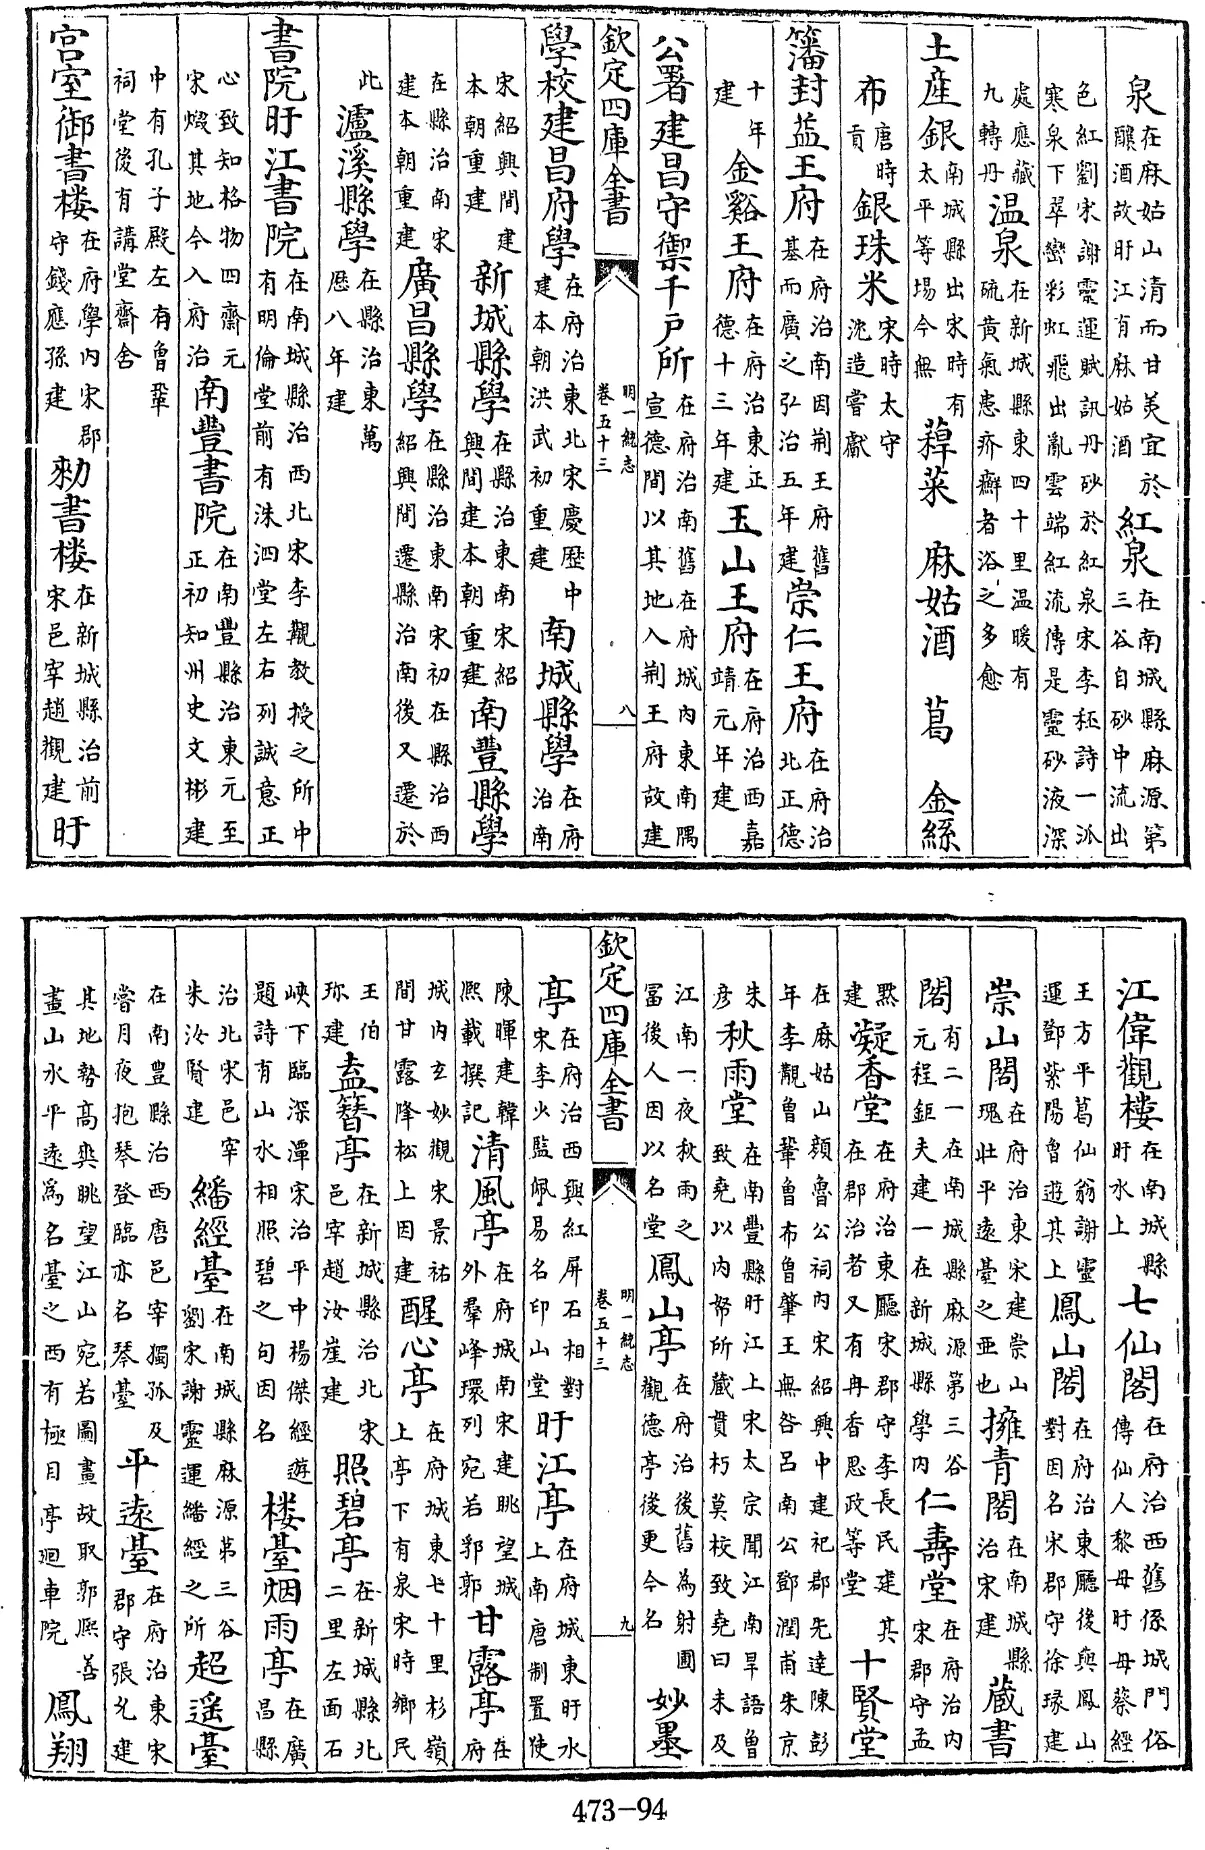 泉在麻姑山清而甘美宜於釀酒故盱江有麻姑酒紅泉在南城縣麻源第三谷自砂中流出
色紅劉宋謝靈運賦訊丹砂於紅泉宋李秠詩一派寒泉下翠巒彩虹飛出亂雲端紅流傳是靈砂液深
處應藏九轉丹温泉在新城縣東四十里温暖有硫黄氣患疥癬者浴之多愈
土産銀南城縣出宋時有太平等場今無菜 麻姑酒 葛 金絲
布唐時貢銀珠米宋時太守沈造嘗獻
籓封益王府在府治南因荆王府舊基而廣之弘治五年建崇仁王府在府治北正德
十年建金谿王府在府治東正德十三年建玉山王府在府治西嘉靖元年建
公署建昌守禦千戸所在府治南舊在府城内東南隅宣德間以其地入荆王府故建
欽定四庫全書 明一統志 卷五十三 八
學校建昌府學在府治東北宋慶歴中建本朝洪武初重建南城縣學在府治南
宋紹興間建本朝重建新城縣學在縣治東南宋紹興間建本朝重建南豐縣學
在縣治南宋建本朝重建廣昌縣學在縣治東南宋初在縣治西紹興間遷縣治南後又遷於
此瀘溪縣學在縣治東萬歴八年建
書院盱江書院在南城縣治西北宋李覯教授之所中有明倫堂前有洙泗堂左右列誠意正
心致知格物四齋元宋燬其地今入府治南豐書院在南豐縣治東元至正初知州史文彬建
中有孔子殿左有曾鞏祠堂後有講堂齋舍
宫室御書樓在府學内宋郡守錢應孫建勅書樓在新城縣治前宋邑宰趙覯建盱
江偉觀樓在南城縣盱水上七仙閣在府治西舊係城門俗傳仙人黎母盱母蔡經
王方平葛仙翁謝靈運鄧紫陽曾遊其上鳳山閣在府治東廳後與鳳山對因名宋郡守徐琭建
崇山閣在府治東宋建崇山瑰壯平遠臺之亞也擁青閣在南城縣治宋建藏書
閣有二一在南城縣麻源第三谷元程鉅夫建一在新城縣學内仁壽堂在府治内宋郡守孟
點建凝香堂在府治東廳宋郡守李長民建其在郡治者又有冉香思政等堂十賢堂
在麻姑山顔魯公祠内宋紹興中建祀郡先達陳彭年李覯曾鞏曾布曾肇王無咎吕南公鄧潤甫朱京
朱彦秋雨堂在南豐縣盱江上宋太宗聞江南旱語曾致堯以内帑所藏貫朽莫校致堯曰未及
江南一夜秋雨之冨後人因以名堂鳳山亭在府治後舊為射圃觀德亭後更今名妙墨
欽定四庫全書 明一統志 卷五十三 九
亭在府治西與紅屏石相對宋李火監佩易名印山堂盱江亭在府城東盱水上南唐制置使
陳暉建韓熙載撰記清風亭在府城南宋建眺望城外羣峰環列宛若郛郭甘露亭在府
城内玄妙觀宋景祐間甘露降松上因建醒心亭在府城東七十里杉嶺上亭下有泉宋時鄉民
王伯珎建盍簪亭在新城縣治北宋邑宰趙汝崖建照碧亭在新城縣北二里左面石
峽下臨深潭宋治平中楊傑經遊題詩有山水相照碧之句因名樓臺烟雨亭在廣昌縣
治北宋邑宰朱汝賢建繙經臺在南城縣麻源第三谷劉宋謝靈運繙經之所超遥臺
在南豊縣治西唐邑宰獨孤及嘗月夜抱琴登臨亦名琴臺平遠臺在府治東宋郡守張允建
其地勢高爽眺望江山宛若圖畫故取郭熙善畫山水平遠爲名臺之西有極目亭廻車院鳳翔
473-94